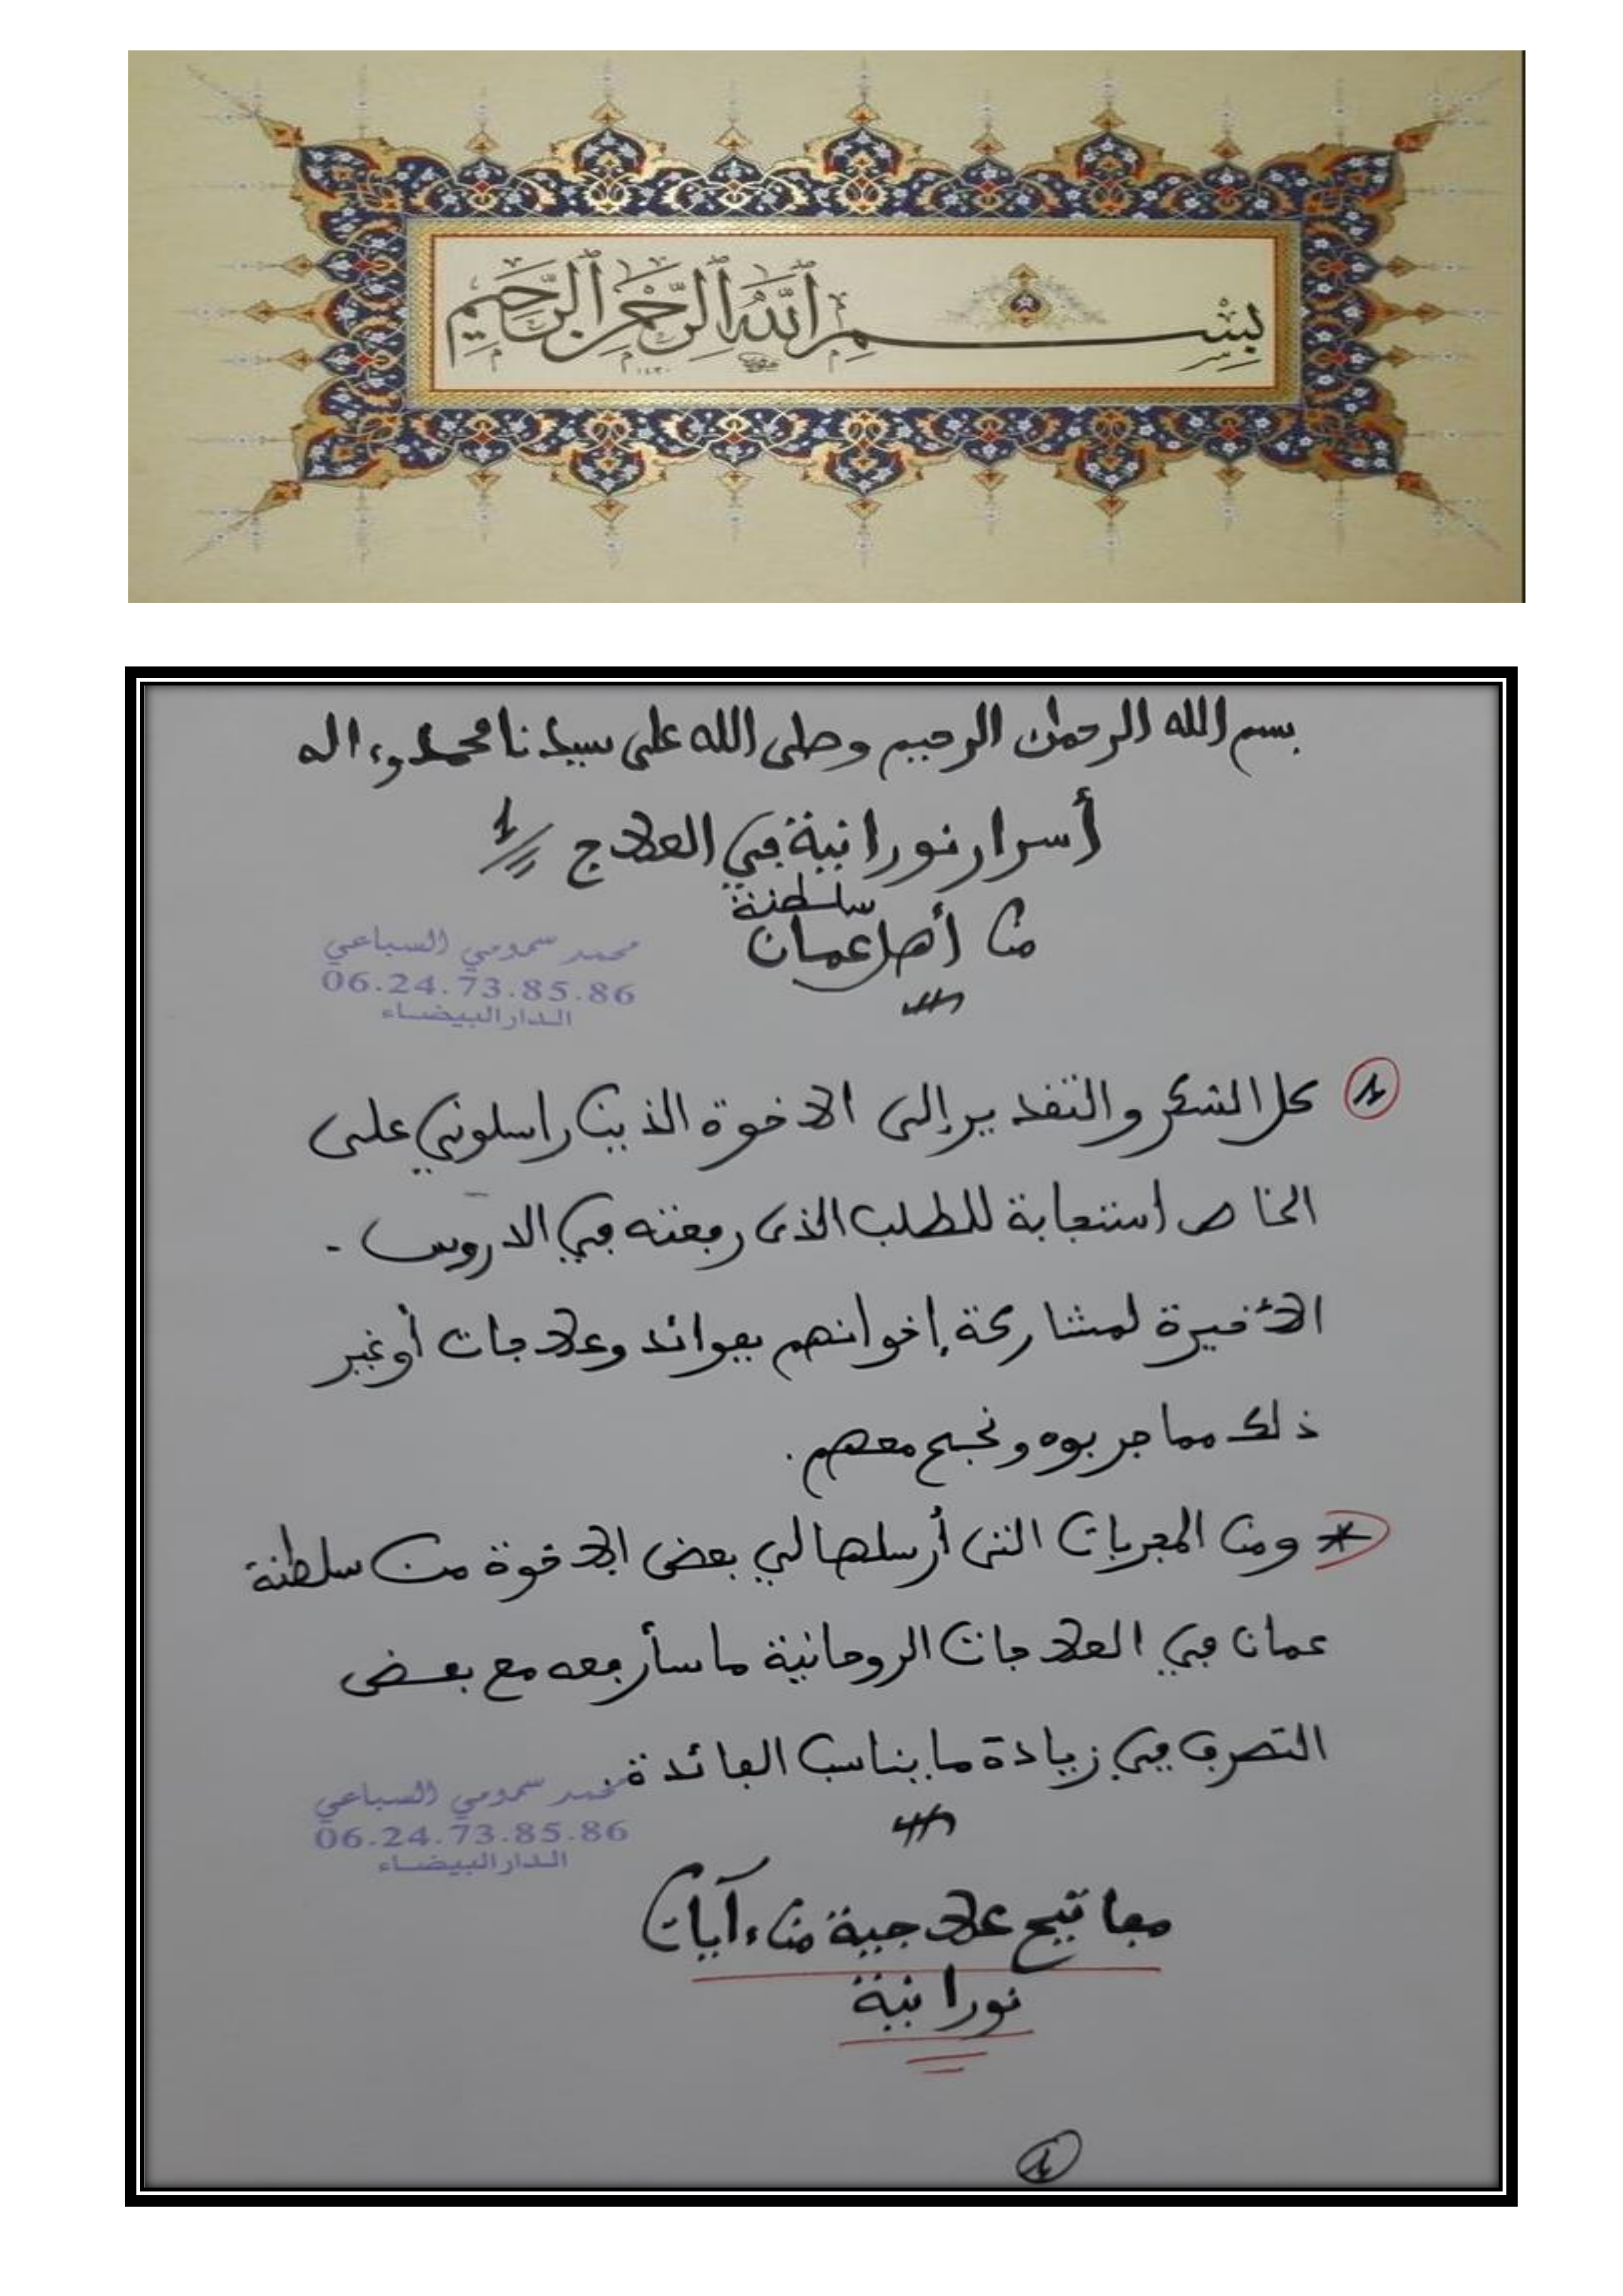 بِسْمِ ٱللَّهِ ٱلرَّحْمَٰنِ ٱلرَّحِيمِ
١٤٣٠
بسم الله الرحمان الرحيم وصلى الله على سيدنا محمد وءاله
أسرار نورانية في العلاج 1
من أهل سلطنة عمان
محمد سمومي السباعي
06.24.73.85.86
الدار البيضاء
1 كل الشكر والتقدير إلى الاخوة الذين راسلوني على
الخاص استجابة للطلب الذي رفعته في الدروس -
الأخيرة لمشاركة إخوانهم بفوائد وعلاجات أو غير
ذلك مما جربوه ونجح معهم.
* ومن المجربات التي أرسلها لي بعض الاخوة من سلطنة
عمان في العلاجات الروحانية ما سأرفعه مع بعض
التصرف في زيادة ما يناسب الفائدة.
محمد سمومي السباعي
06.24.73.85.86
الدار البيضاء
مفاتيح علاجية من ءايات
نورانية
1